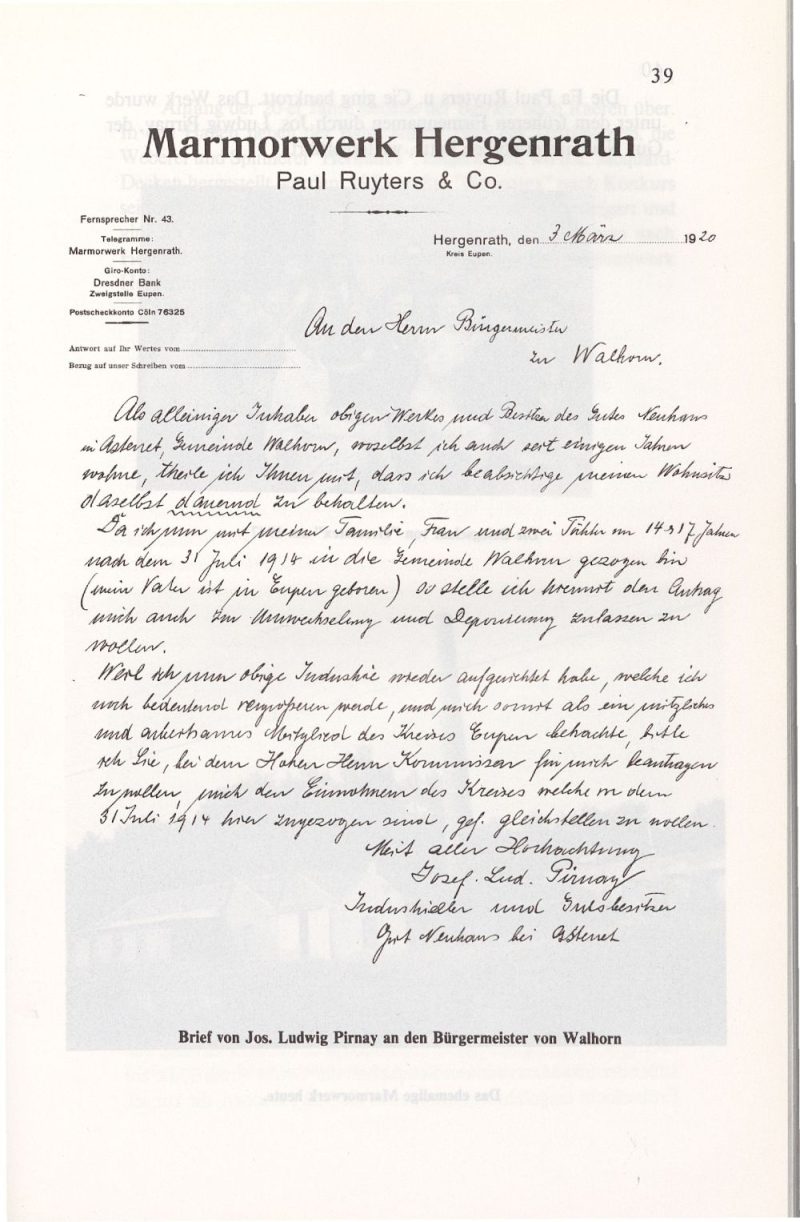 39
Marmorwerk Hergenrath
Paul Ruyters & Co.
Fernsprecher Nr. 43.
Telegramme:
Marmorwerk Hergenrath.
Giro-Konto:
Dresdner Bank
Zweigstelle Eupen.
Postscheckkonto Cöln 76325
Hergenrath, den 3 März 1920
Kreis Eupen.
Antwort auf Ihr Wertes vom
Bezug auf unser Schreiben vom
An den Herrn Bürgermeister
zu Walhorn.
Als alleiniger Inhaber obigen Werkes und Besitzer des Gutes Neuhaus
in Astenet, Gemeinde Walhorn, woselbst ich auch seit einigen Jahren
wohne, theile ich Ihnen mit, dass ich beabsichtige meinen Wohnsitz
daselbst dauernd zu behalten.
Da ich nun mit meiner Familie, Frau und zwei Töchter 14 17 Jahren
nach dem 31 Juli 1914 in die Gemeinde Walhorn gezogen bin
(mein Vater ist in Eupen geboren) so stelle ich hiermit den Antrag
mich auch zur Umwechselung und Deponierung zulassen zu
wollen.
Weil ich nun obige Industrie wieder aufgerichtet habe, welche ich
noch bedeutend vergrößeren werde, und mich somit als ein nützliches
und arbeitsames Mitglied des Kreises Eupen betrachte, bitte
ich Sie, bei dem Hohen Herrn Kommissar für mich beantragen
zu wollen, mich den Einwohnern des Kreises welche vor dem
31 Juli 1914 hier zugezogen sind, gef. gleichstellen zu wollen.
Mit aller Hochachtung
Josef. Lud. Pirnay
Industrieller und Gutsbesitzer
Gut Neuhaus bei Astenet
Brief von Jos. Ludwig Pirnay an den Bürgermeister von Walhorn
Das ehemalige Marmorwerk heute.